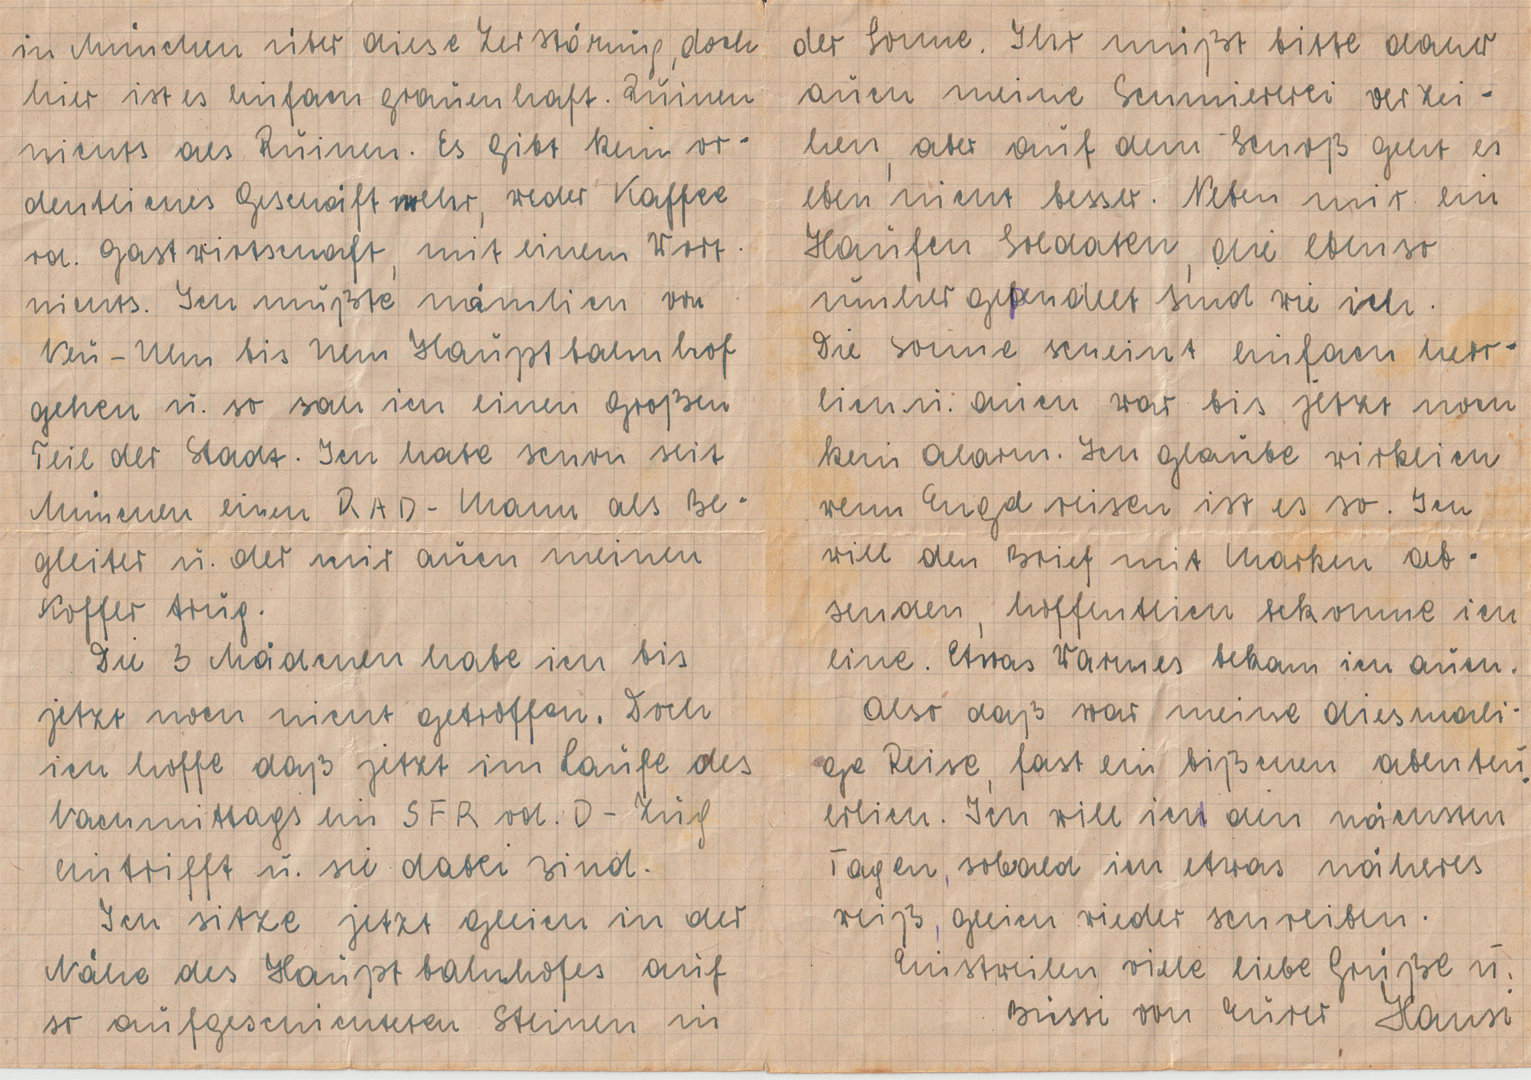 in München über diese Zerstörung, doch
hier ist es einfach grauenhaft. Ruinen
nichts als Ruinen. Es gibt kein or-
dentliches Geschäft mehr, weder Kaffee
od. Gastwirtschaft, mit einem Wort
nichts. Ich mußte nämlich von
Neu-Ulm bis Ulm Hauptbahnhof
gehen u. so sah ich einen großen
Teil der Stadt. Ich habe schon seit
München einen RAD-Mann als Be-
gleiter u. der mir auch meinen
Koffer trug.
Die 3 Mädchen habe ich bis
jetzt noch nicht getroffen. Doch
ich hoffe daß jetzt im Laufe des
Nachmittags ein SFR od. D-Zug
eintrifft u. sie dabei sind.
Ich sitze jetzt gleich in der
Nähe des Hauptbahnhofes auf
so aufgeschichteten Steinen in
der Sonne. Ihr müßt bitte daher
auch meine Schmiererei verzei-
hen, aber auf dem Schoß geht es
eben nicht besser. Neben mir ein
Haufen Soldaten, die ebenso
umher gependelt sind wie ich.
Die Sonne scheint einfach herr-
lich u. auch war bis jetzt noch
kein Alarm. Ich glaube wirklich
wenn Engd reisen ist es so. Ich
will den Brief mit Marken ab-
senden, hoffentlich bekomme ich
eine. Etwas Warmes bekam ich auch.
Also daß war meine diesmali-
ge Reise, fast ein bißchen abenteu-
erlich. Ich will ich den nächsten
Tagen, sobald ich etwas näheres
weiß, gleich wieder schreiben.
Einstweilen viele liebe Grüße u.
Bussi von Eurer Hansi